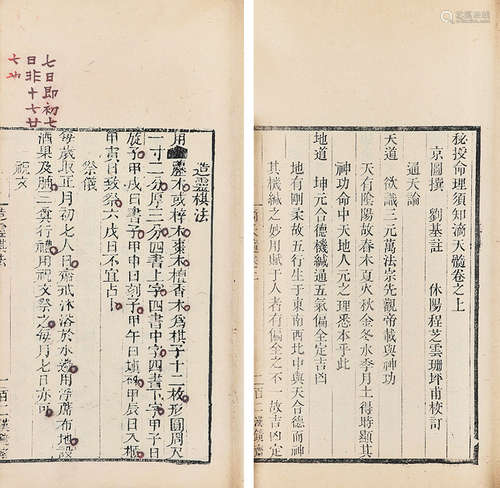 秘授命理須知滴天髓卷之上
京圖撰 劉基註 休陽程芝雲珊坪甫校訂
通天論
天道 欲識三元萬法宗先觀帝載與神功
天有陰陽故春木夏火秋金冬水季月土得時顯其
神功命中天地人元之理悉本乎此
地道 坤元合德機緘通五氣偏全定吉凶
地有剛柔故五行生于東南西北中與天合德而神
其機緘之妙用賦于人者有偏全之不一故吉凶定
七日即初七
日非十七廿
七也
造靈棋法
用靂木或梓木棗木檀香木爲棋子十二枚形圓周尺
一寸二分厚三分四書上字四書中字四書下字甲子日
旋子甲戌日書子甲申日刻子甲午日填甲辰日入櫃
甲寅日致祭六戊日不宜占卜
祭儀
每歲取正月初七人日齋戒沐浴於水邊用淨席布地設
酒果及脯三奠行禮用祝文祭之每月七日亦可
祝文